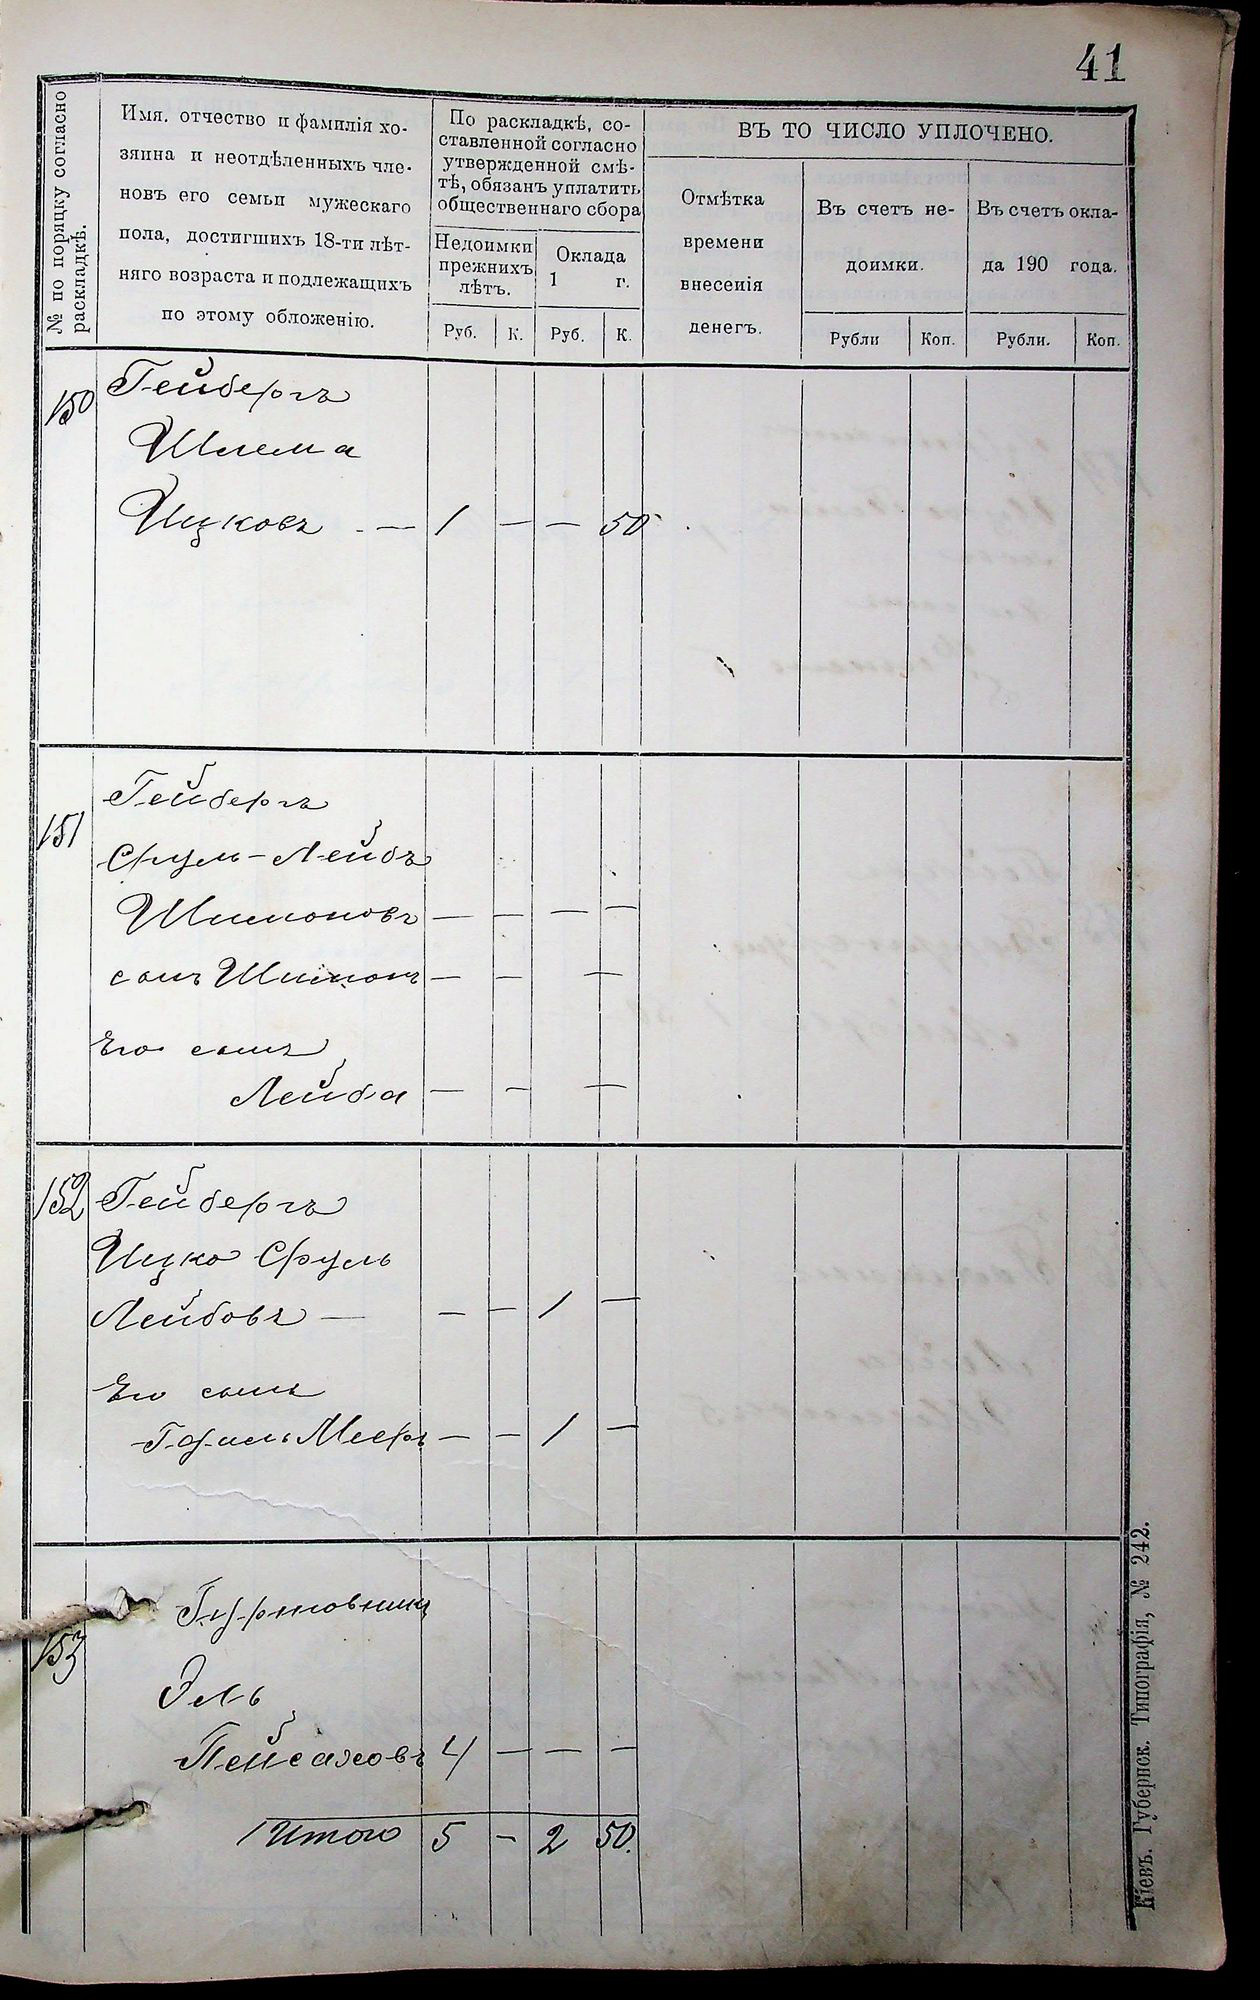 41
№ по поряцку согласно
раскладкѣ.
Имя. отчество и фамилія хо-
зяина и неотдѣленныхъ чле-
новъ его семьи мужескаго
пола, достигшихъ 18-ти лѣт-
няго возраста и подлежащихъ
по этому обложенію.
По раскладкѣ, со-
ставленной согласно
утвержденной смѣ-
тѣ, обязанъ уплатить
общественнаго сбора
Недоимки
прежнихъ
лѣтъ.
Оклада
1 г.
Руб. К. Руб. К.
ВЪ ТО ЧИСЛО УПЛОЧЕНО.
Отмѣтка
времени
внесенія
денегъ.
Въ счетъ не-
доимки.
Въ счетъ окла-
да 190 года.
Рубли Коп. Рубли. Коп.
150 Гейбергъ
Шлема
Ицковъ — 1 — — 50
151 Гейбергъ
Сруль-Лейбъ
Шимоновъ — — — —
сынъ Шимонъ — — —
Его сынъ
Лейба — — —
152 Гейбергъ
Ицко Сруль
Лейбовъ — — — 1 —
Его сынъ
Мееръ — — 1 —
153
Эль
Пейсаховъ 4 — — —
Итого 5 — 2 50.
Кіевъ. Губернск. Типографія, № 242.